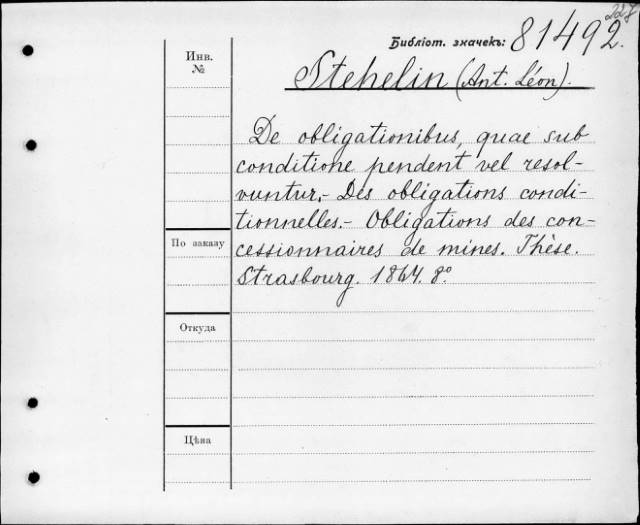 227
Библіот. значекъ: 81492.
Инв.
№
Stehelin (Ant. Léon).
De obligationibus, quae sub
conditione pendent vel resol-
vuntur.- Des obligations condi-
tionnelles.- Obligations des con-
cessionnaires de mines. Thèse.
Strasbourg. 1864. 8º
По заказу
Откуда
Цѣна